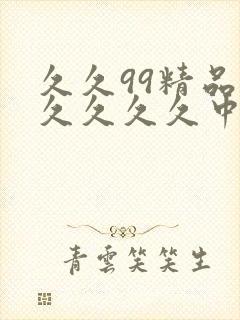 久久99精品
久久久久中
青雲笑笑生